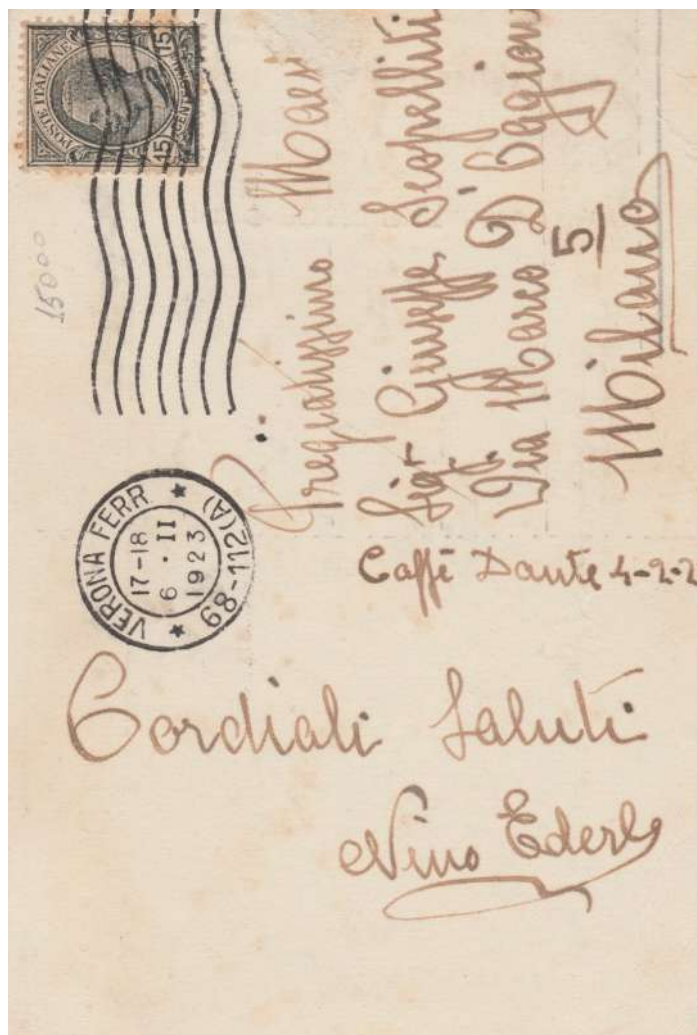 POSTE ITALIANE
15 CENT 15
15000
VERONA FERR
17-18
6 · II
1923
68-112(A)
Pregiatissimo
Sigr Giuseppe Scopelliti
Via Marco D'
5
Milano
Caffè Dante 4-2-2
Cordiali Saluti
Nino